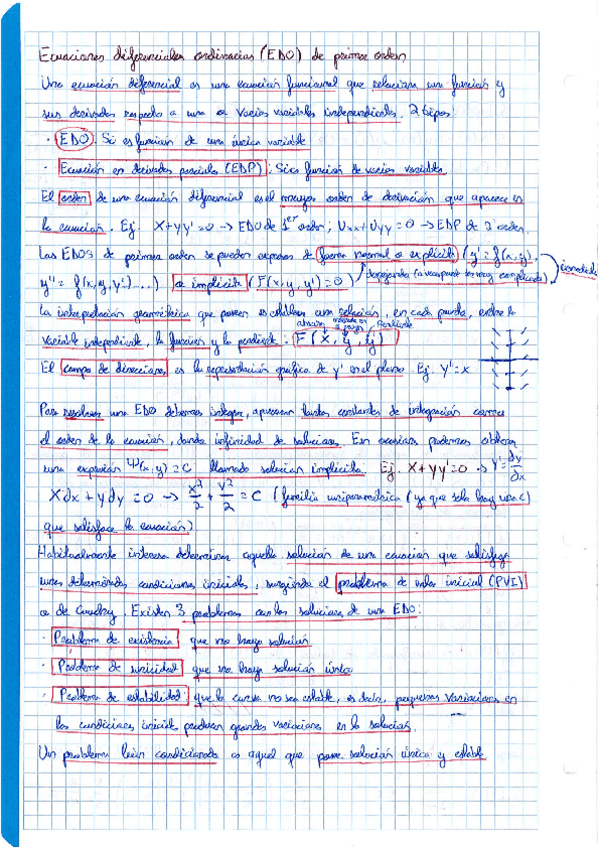 Ecuaciones diferenciales ordinarias (EDO) de primer orden
Una ecuación diferencial es una ecuación funcional que relaciona una función y
sus derivadas respecto a una o varias variables independientes. 2 tipos:
· EDO: Si es función de una única variable
· Ecuación en derivadas parciales (EDP): Si es función de varias variables
El orden de una ecuación diferencial es el mayor orden de derivación que aparece en
la ecuación. Ej: X+yy'=0 → EDO de 1er orden; Uxx+Uyy=0 → EDP de 2º orden.
Las EDOS de primer orden se pueden expresar de forma normal o explícita (y'=f(x,y),
y''=f(x,y,y')....) o implícita (F(x,y,y')=0) despejando (a veces puede ser muy complicado)
La interpretación geométrica que poseen es establecer una relación, en cada punto, entre la
variable independiente, la función y la pendiente. F(x, y, y')
El campo de direcciones es la representación gráfica de y' en el plano. Ej: y'=x
Para resolver una EDO debemos integrar, aparecen tantas constantes de integración como
el orden de la ecuación, dando infinidad de soluciones. En ocasiones podremos obtener
una expresión Ψ(x,y)=C llamada solución implícita. Ej: X+yy'=0 → y'=dy/dx
Xdx+ydy=0 → x²/2+y²/2=C (familia uniparamétrica (ya que solo hay una c)
que satisface la ecuación)
Habitualmente interesa determinar aquella solución de una ecuación que satisfaga
unas determinadas condiciones iniciales, surgiendo el problema de valor inicial (PVI)
o de Cauchy. Existen 3 problemas con las soluciones de una EDO:
· Problema de existencia: que no haya solución
· Problema de unicidad: que no haya solución única
· Problema de estabilidad: que la curva no sea estable, es decir, pequeñas variaciones en
las condiciones iniciales producen grandes variaciones en la solución.
Un problema bien condicionado es aquel que posee solución única y estable